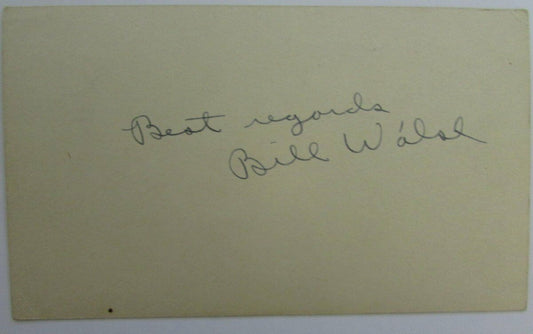 Best regards
Bill Walsh